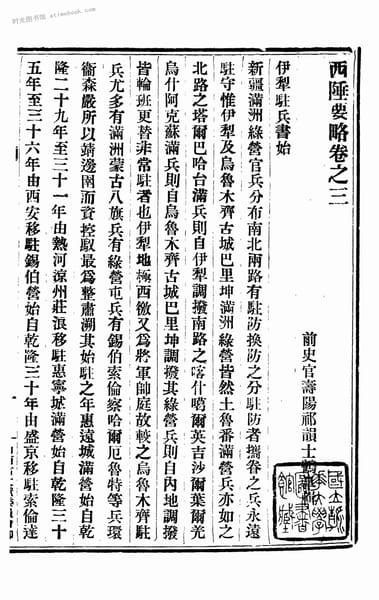 时光图书馆 · atimebook.com
西陲要略卷之三
前史官壽陽祁韻士
伊犁駐兵書始
新疆滿洲綠營官兵分布南北兩路有駐防換防之分駐防者攜眷之兵永遠
駐守惟伊犁及烏魯木齊古城巴里坤滿洲綠營皆然土魯番滿營兵亦如之
北路之塔爾巴哈台滿兵則自伊犁調撥南路之喀什噶爾英吉沙爾葉爾羌
烏什阿克蘇滿兵則自烏魯木齊古城巴里坤調撥其綠營兵則自內地調撥
皆輪班更替非常駐者也伊犁地極西徼又為將軍帥庭故較之烏魯木齊駐
兵尤多有滿洲蒙古八旗兵有綠營屯兵有錫伯索倫察哈爾厄魯特等兵環
衞森嚴所以靖邊圉而資控馭最為整肅溯其始駐之年惠遠城滿營始自乾
隆二十九年至三十一年由熱河涼州莊浪移駐惠寧城滿營始自乾隆三十
五年至三十六年由西安移駐錫伯營始自乾隆三十年由盛京移駐索倫達